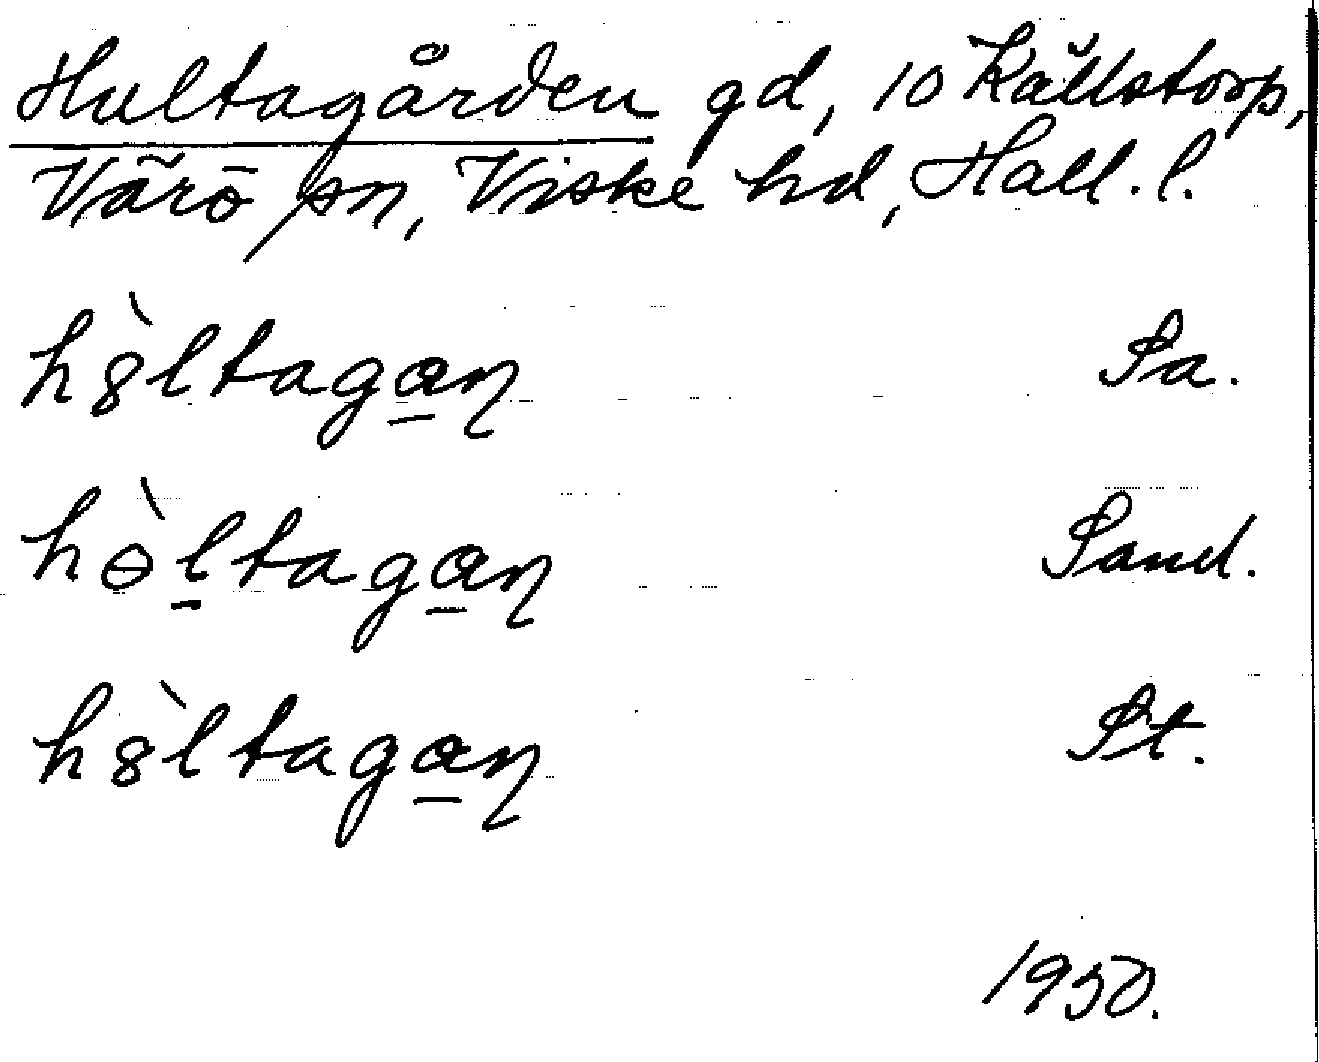 Hultagården gd, 10 Källstorp,
Värö sn, Viske hd, Hall. l.
hȣ̀ltaga̲ɳ Pa.
hɵ̀l̲taga̲ɳ Pand.
hȣ̀ltaga̲ɳ Pt.
1950.